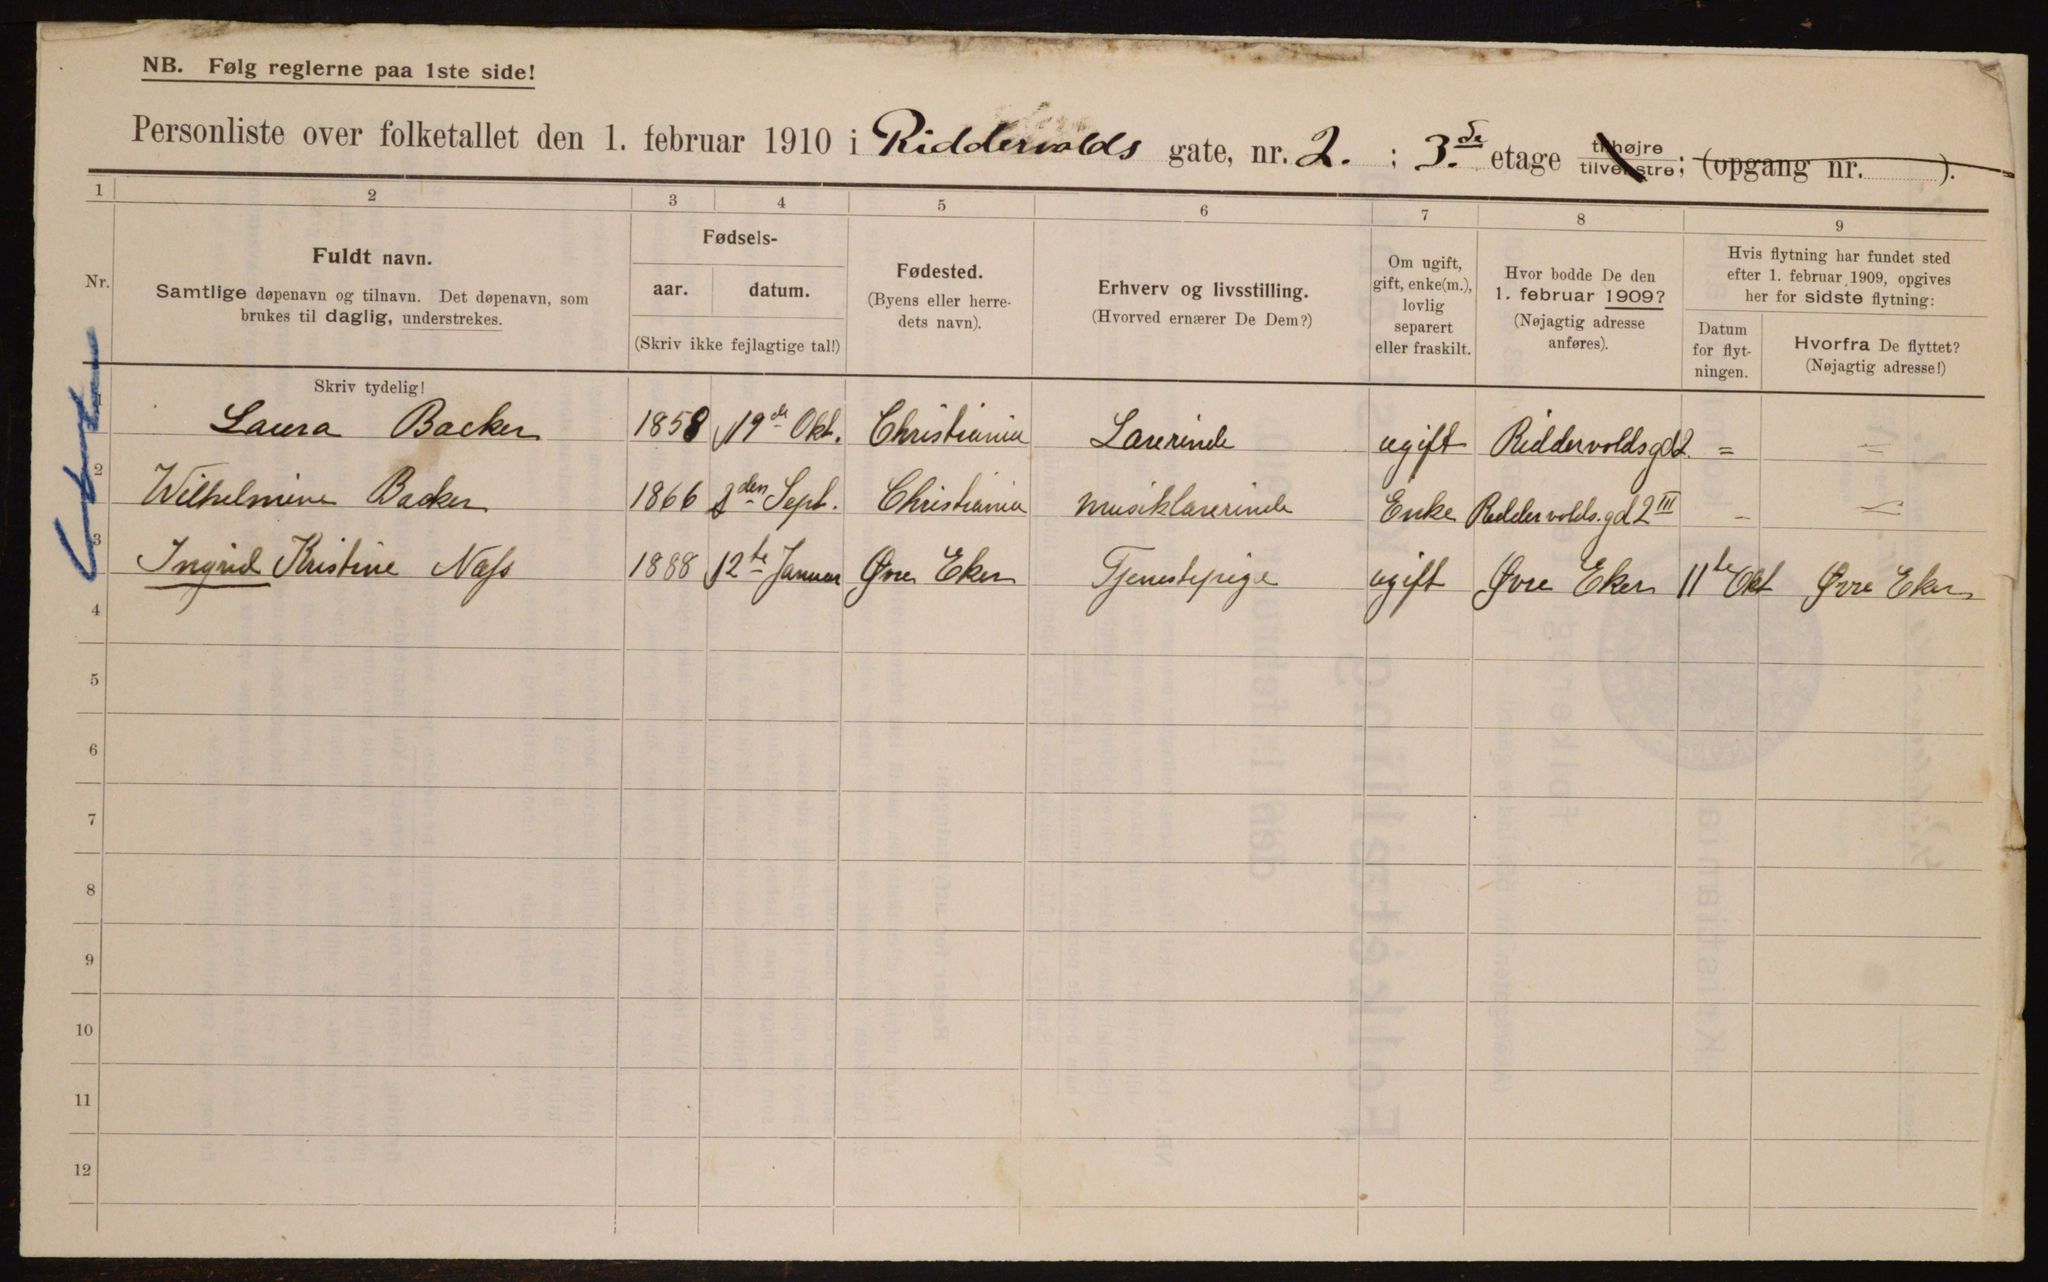 NB. Følg reglerne paa 1ste side!
Personliste over folketallet den 1. februar 1910 i Riddervolds gate, nr. 2. ; 3.de etage tilhøjre tilvenstre; (opgang nr. ).
1 2 3 4 5 6 7 8 9
Nr.
Fuldt navn.
Samtlige døpenavn og tilnavn. Det døpenavn, som
brukes til daglig, understrekes.
Skriv tydelig!
Fødsels-
aar. datum.
(Skriv ikke fejlagtige tal!)
Fødested.
(Byens eller herre-
dets navn).
Erhverv og livsstilling.
(Hvorved ernærer De Dem?)
Om ugift,
gift, enke(m.),
lovlig
separert
eller fraskilt.
Hvor bodde De den
1. februar 1909?
(Nøjagtig adresse
anføres).
Hvis flytning har fundet sted
efter 1. februar 1909, opgives
her for sidste flytning:
Datum
for flyt-
ningen.
Hvorfra De flyttet?
(Nøjagtig adresse!)
1 Laura Backer 1858 19de Okt. Christiania Lærerinde ugift Riddervoldsgd 2. = =
2 Wilhelmine Backer 1866 den Sept. Christiania Musiklærerinde Enke Riddervolds.gd 2 III - -
3 Ingrid Kristine Næss 1888 12te Januar Øvre Eker Tjenestepige ugift Øvre Eker 11te Okt Øvre Eker
4
5
6
7
8
9
10
11
12